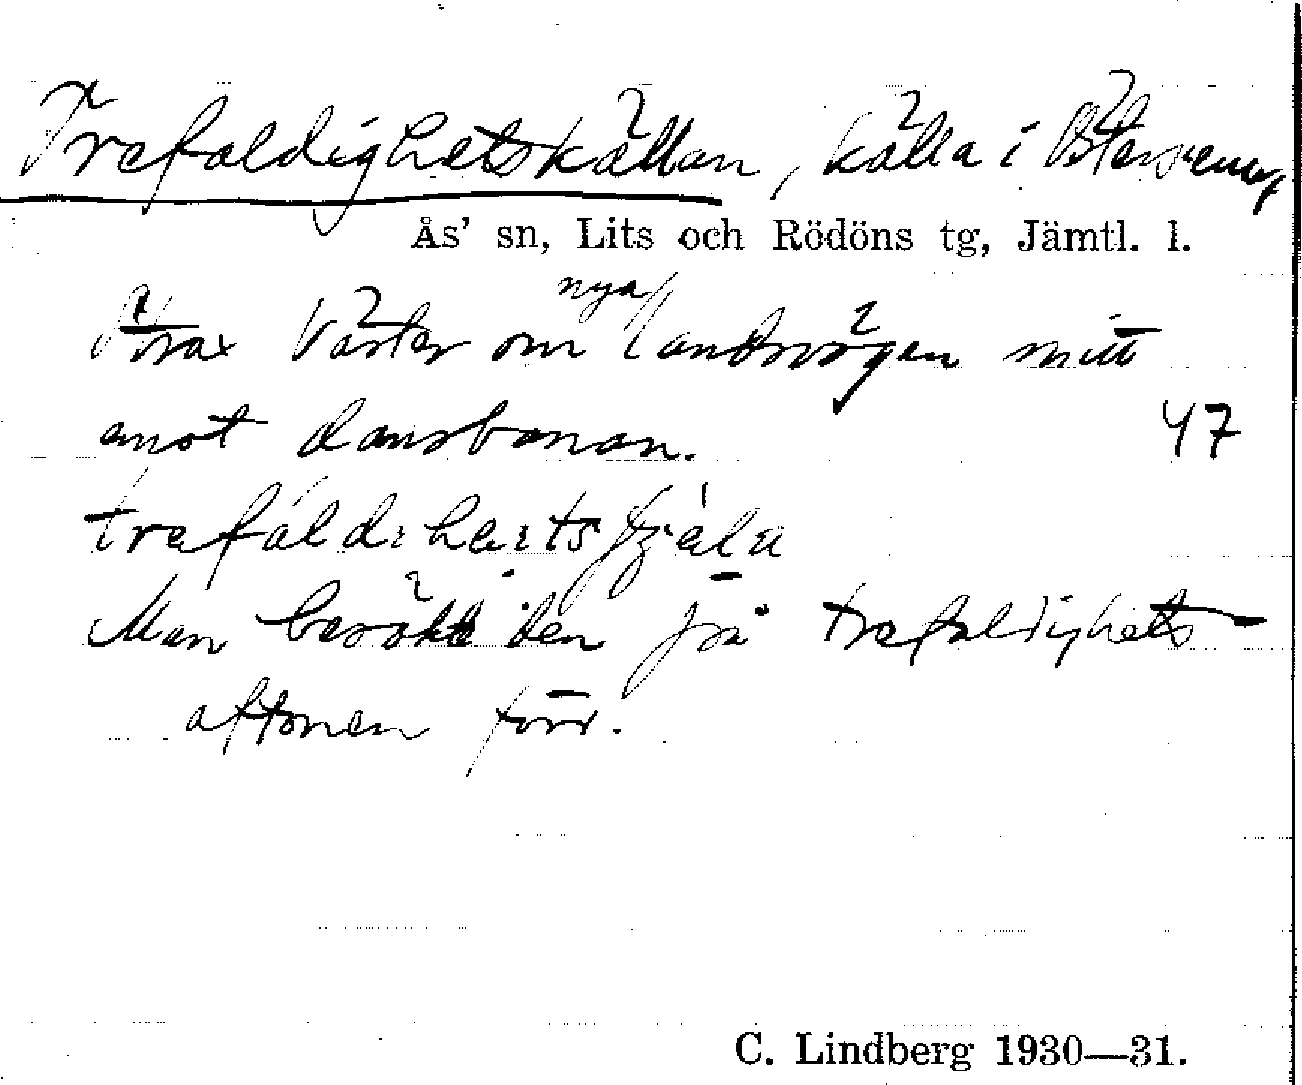 Trefaldighetskällan, källa i Östersremg
Ås' sn, Lits och Rödöns tg, Jämtl. l.
nya
Strax Väster om landsvägen mitt
emot dansbanan. 47
trefáldiheits
Man besökte den på trefaldighets-
aftonen förr.
C. Lindberg 1930—31.